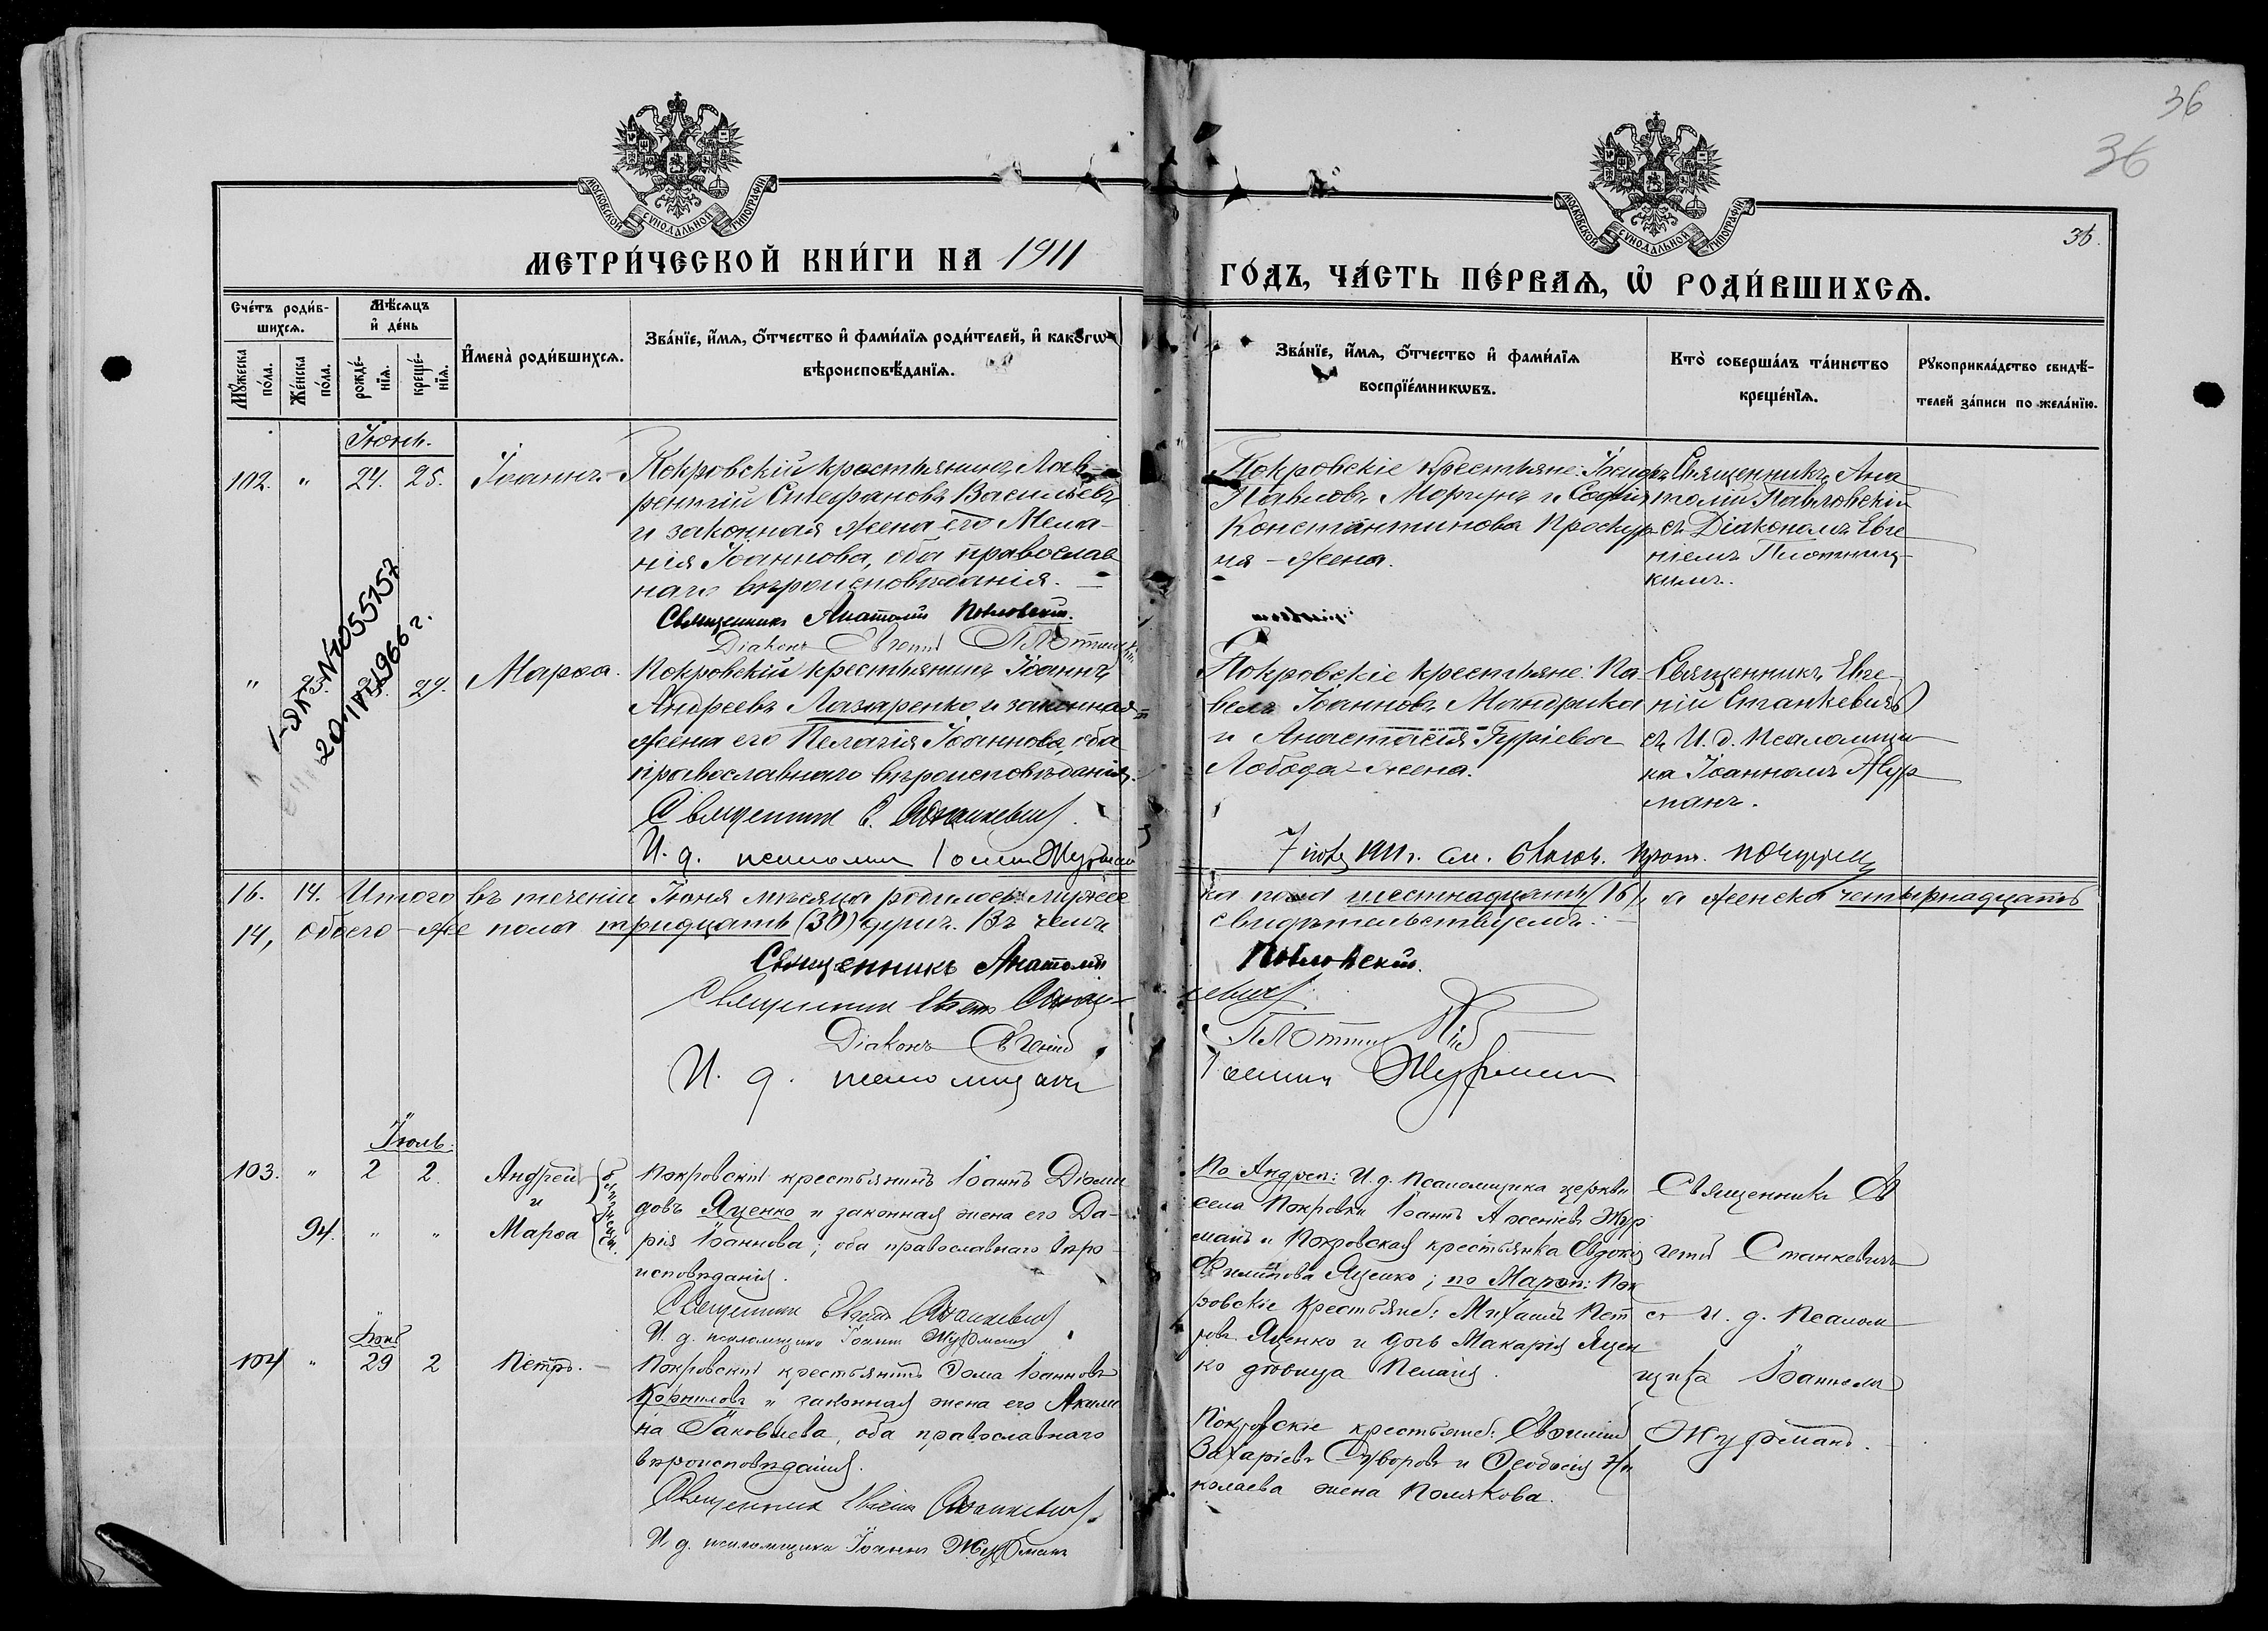 36
36
36.
МОСКОВСКОЙ СѴНОДАЛЬНОЙ ТИПОГРАФІИ
МОСКОВСКОЙ СѴНОДАЛЬНОЙ ТИПОГРАФІИ
МЕТРИ́ЧЕСКОЙ КНИ́ГИ НА 1911
ГО́ДЪ, ЧА́СТЬ ПЕ́РВАѦ, Ѡ҆ РОДИ́ВШИХСѦ.
Сче́тъ роди́в-
шихсѧ.
Мѣ́сѧцъ
и҆ де́нь
Мꙋ́жеска
по́ла.
Же́нска
по́ла.
рожде́-
нїѧ.
креще́-
нїѧ.
И҆мена̀ роди́вшихсѧ.
Зва́нїе, и҆́мѧ, ѻ҆́тчество и҆ фами́лїѧ роди́телей, и҆ како́гѡ
вѣроисповѣ́данїѧ.
Зва́нїе, и҆́мѧ, ѻ҆́тчество и҆ фами́лїѧ
воспрїе́мникѡвъ.
Кто̀ соверша́лъ та́инство
креще́нїѧ.
Рꙋкоприкла́дство свидѣ́-
телей за́писи по жела́нїю.
Іюнь.
102. " 24. 25. Іоаннъ-
Покровскій крестьянинъ Лав-
рентій Стефановъ Васильевъ
и законная жена его Мела-
нія Іоаннова, оба православ
наго вѣроисповѣданія. —
Священникъ Анатолій Павловскій.
Діаконъ Евгеній Плотницкій
Покровскіе крестьяне:
Павловъ Моргунъ и Софія
Константинова Проскур-
ня - жена.
Священникъ Ана
толій Павловскій
съ Діакономъ Евге
ніемъ Плотниц-
кимъ.
I-ЯК N 1055157
20.IV.1966 г.
" 93. 23. 29. Марѳа.
Покровскій крестьянинъ Іоаннъ
Андреевъ Лазаренко и законная
жена его Пелагія Іоаннова, оба
православнаго вѣроисповѣданія.
Священникъ Е. Станкевичъ.
И. д. псаломщ Іоаннъ Журманъ
Покровскіе крестьяне: Па
велъ Іоанновъ Мандрика
и Анастасія Гуріева
Лобода - жена.
Священникъ Евге
ній Станкевичъ
съ И. д. Псаломщи
ка Іоанномъ Жур
манъ.
7 1911 г. см.
16. 14. Итого въ теченіи Іюня мѣсяца родилось мужес
ка пола шестнадцать /16/, а женска четырнадцать
14, обоего-же пола тридцать (30) душъ. Въ чемъ
свидѣтельствуемъ:
Священникъ Анатолій Павловскій.
Священникъ Евгеній Станкевичъ
Діаконъ Евгеній Плотницкій
И. д. псаломщика Іоаннъ Журманъ
Іюль.
103. " 2 2. Андрей
и
94. " " Марѳа
близнецы.
Покровскій крестьянинъ Іоаннъ Діоми
довъ Яценко и законная жена его Да-
рія Іоаннова; оба православнаго вѣро-
исповѣданія.
Священникъ Евгеній Станкевичъ
И. д. псаломщика Іоаннъ Журманъ
По Андреѣ: И. д. Псаломщика церкви
села Покровки Іоаннъ Арсеніевъ Жур
манъ и Покровская крестьянка Евдокія
Филипова Яценко; по Марѳѣ: Пок
ровскіе крестьяне: Михаилъ Пет
ровъ Яценко и дочь Макарія Яцен
ко дѣвица Пелагія.
Священникъ Ев
геній Станкевичъ
съ И. д. Псалом
щика Іоанномъ
Журманъ.
Іюнь
104 " 29 2 Петръ. -
Покровскій крестьянинъ Ѳома Іоанновъ
Корниловъ и законная жена его Акили
на Іаковлева, оба православнаго
вѣроисповѣданія.
Священникъ Евгеній Станкевичъ
И д. псаломщика Іоаннъ Журманъ
Покровскіе крестьяне: Евѳимій
Захаріевъ Суворовъ и Ѳеодосія Ни
колаева жена Полякова.